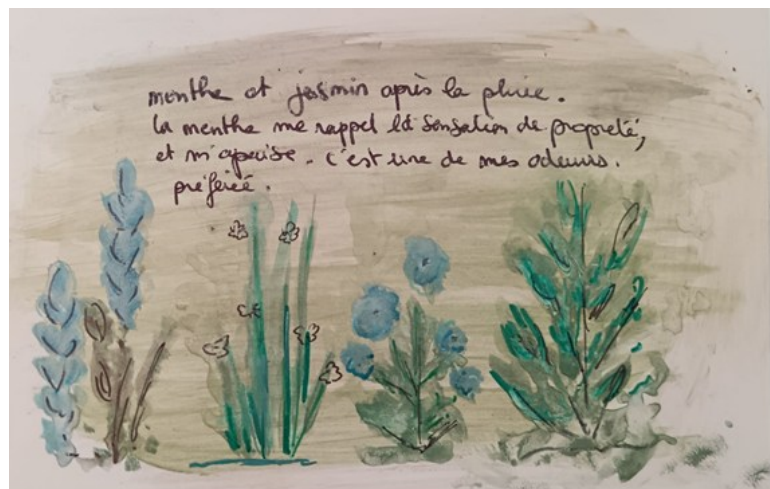 menthe et jasmin après la pluie.
la menthe me rappel la sensation de propreté,
et m'apaise. c'est une de mes odeurs.
préférée.